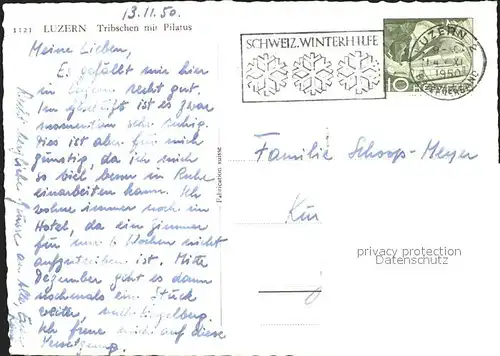 13.11.50.
1121 LUZERN Tribschen mit Pilatus
Meine Lieben,
Es gefällt mir hier
in Luzern recht gut.
Im Geschäft ist es zwar
momentan sehr ruhig.
Dies ist aber für mich
günstig, da ich mich
so viel besser in Ruhe
einarbeiten kann. Ich
wohne immer noch im
Hotel, da ein Zimmer
für nur 4 Wochen nicht
aufzutreiben ist. Mitte
Dezember geht es dann
nochmals ein Stück
weiter, nach Engelberg.
Ich freue mich auf diese
Versetzung.
Recht herzliche Grüsse an Alle, Euer
Fabrication suisse
SCHWEIZ. WINTERHILFE
LUZERN
1950
10
Familie Schoop-Meyer
privacy protection
Datenschutz